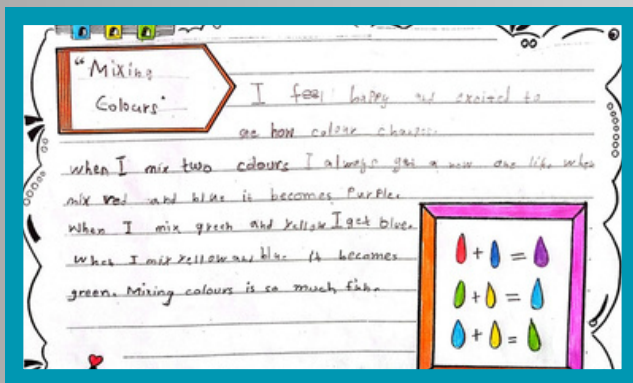 "Mixing
Colours"
I feel happy and excited to
see how colour changes.
when I mix two colours I always get a new one like when
mix red and blue it becomes Purple.
When I mix green and Yellow I get blue.
When I mix Yellow and blue it becomes
green. Mixing colours is so much fun.
+ =
+ =
+ =